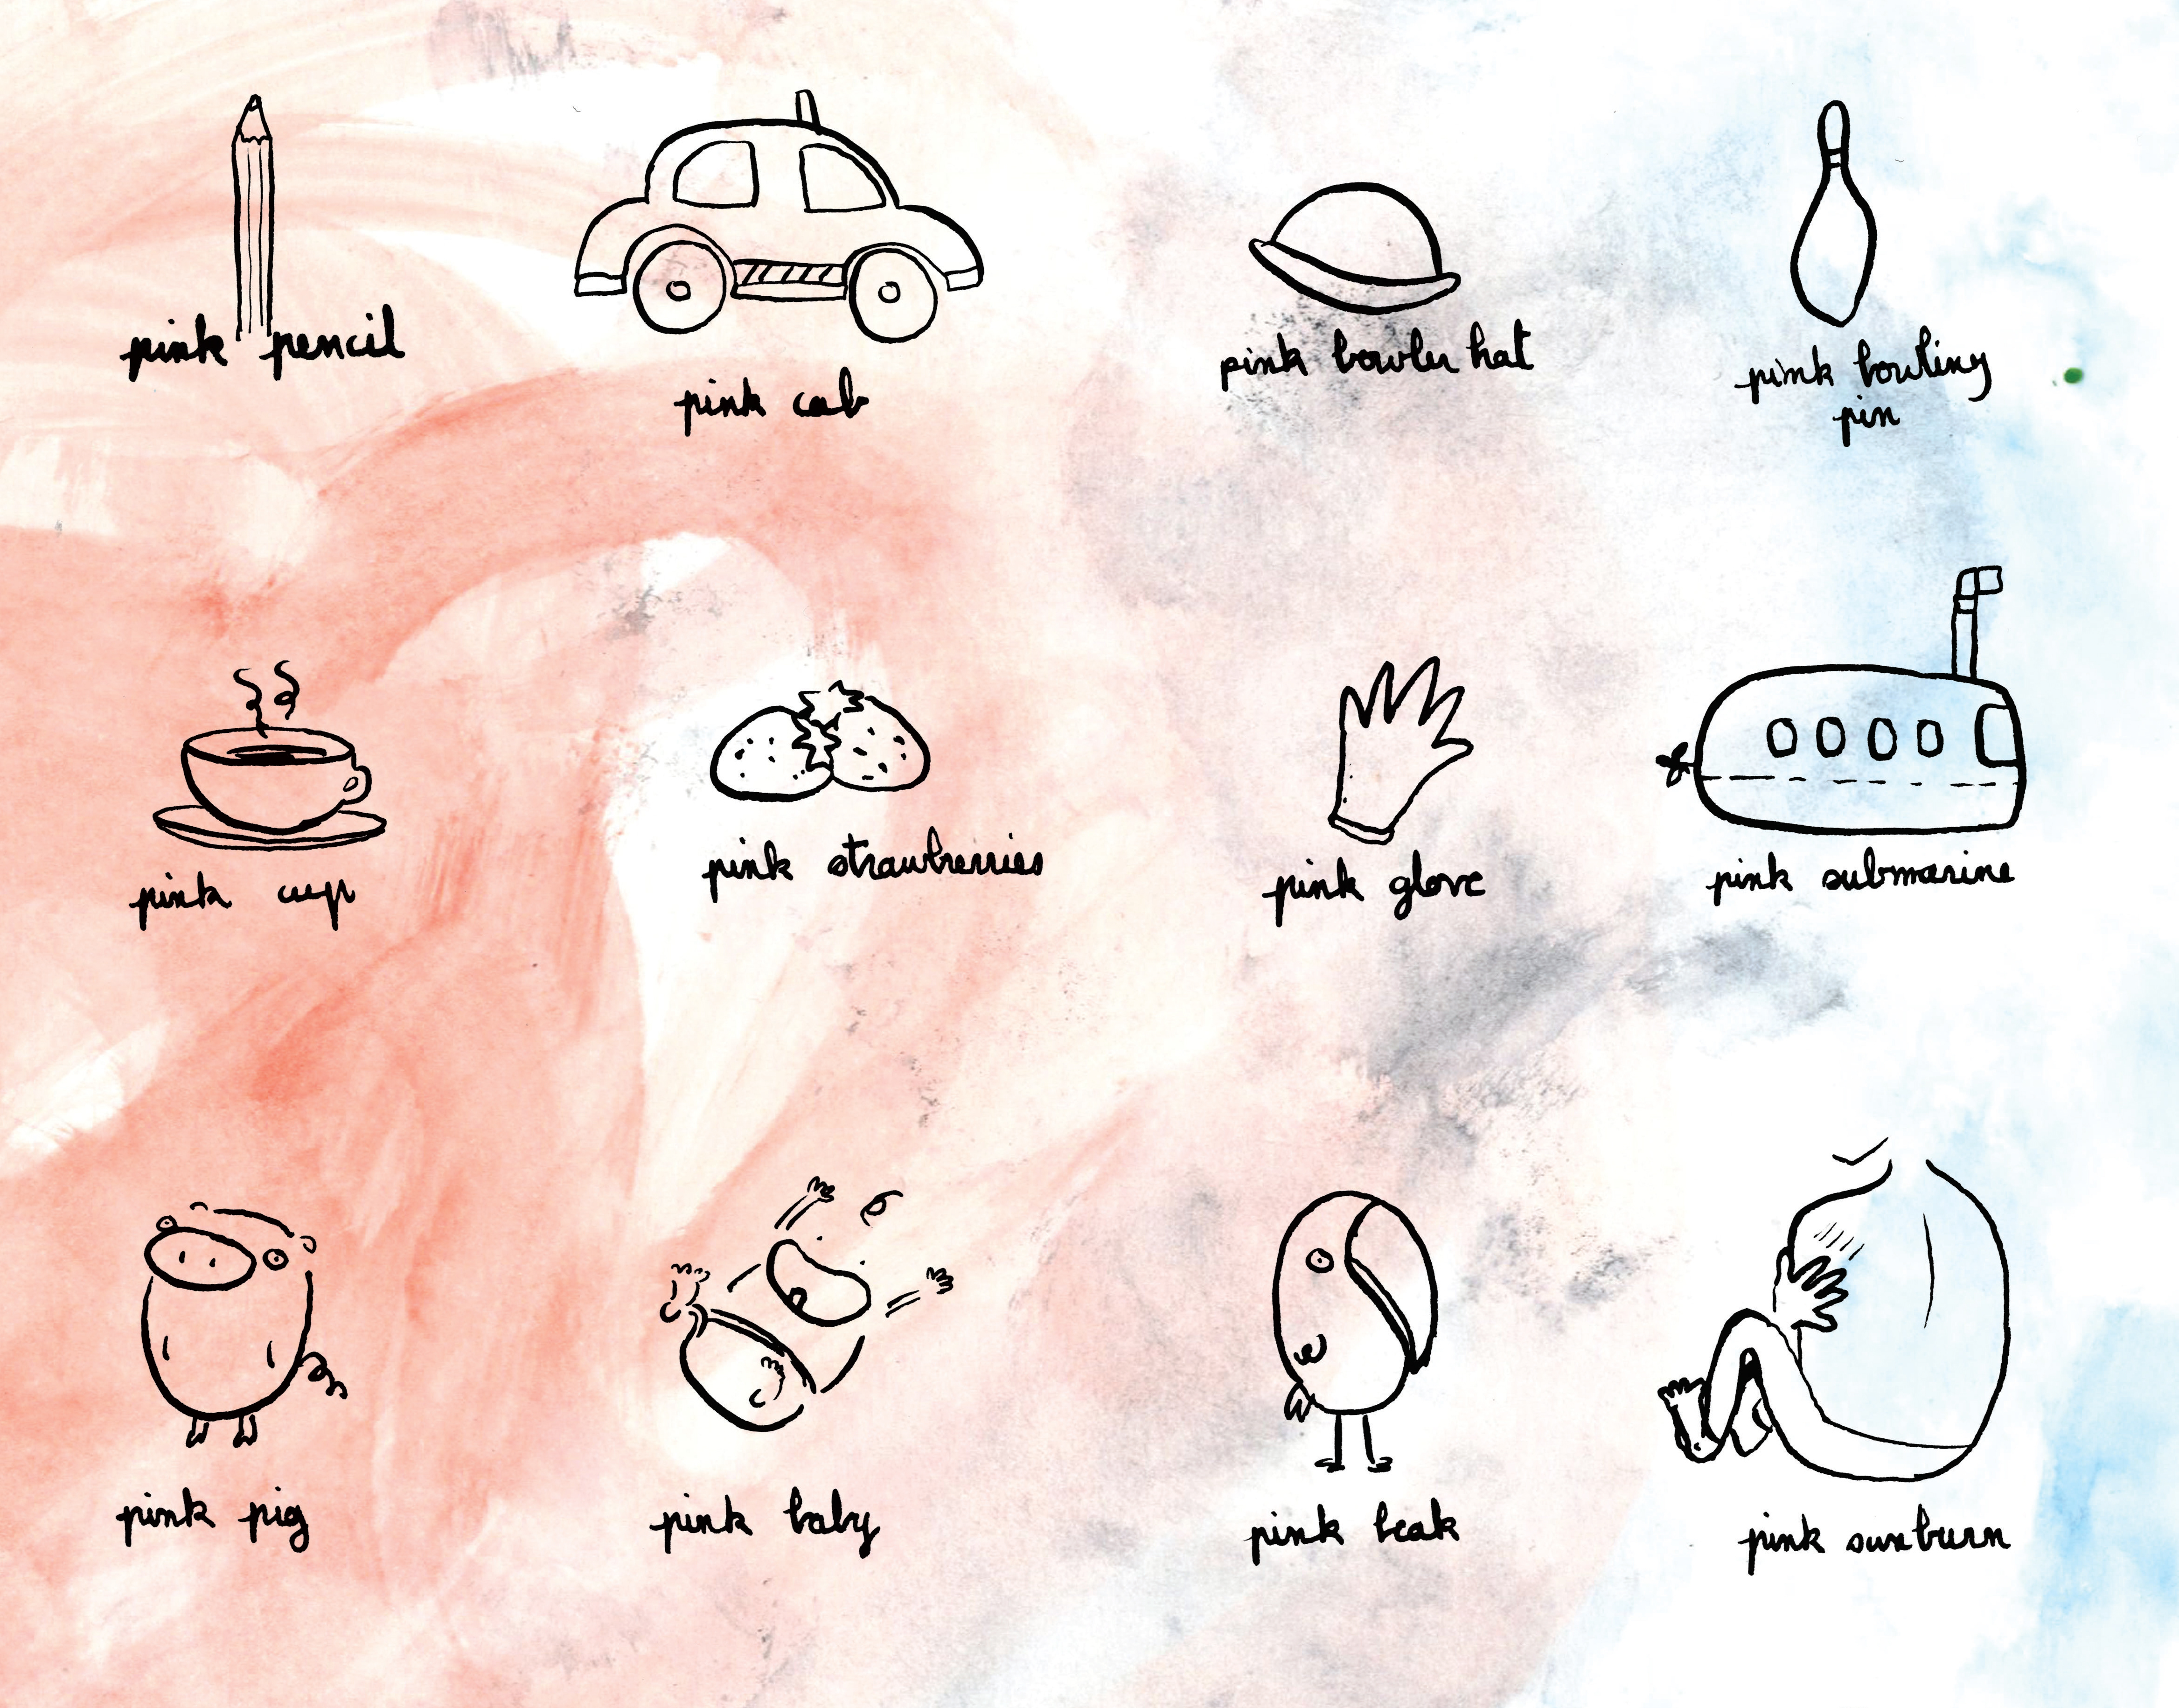 pink pencil
pink cab
pink bowler hat
pink bowling
pin
pink cup
pink strawberries
pink glove
pink submarine
pink pig
pink baby
pink beak
pink sunburn